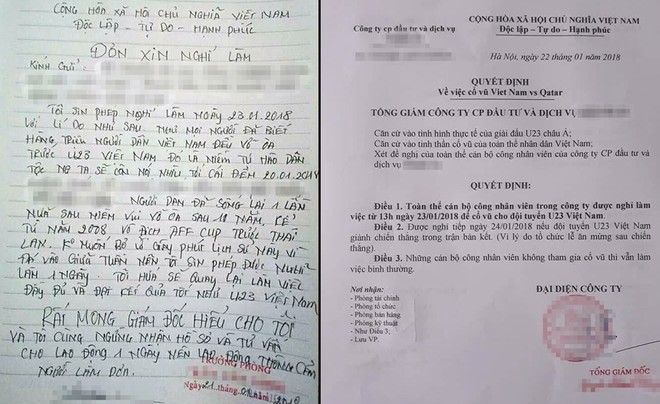 CỘNG HÒA XÃ HỘI CHỦ NGHĨA VIỆT NAM
ĐỘC LẬP - TỰ DO - HẠNH PHÚC
ĐƠN XIN NGHỈ LÀM
KÍNH GỬI:
TÔI SIN PHÉP NGHỈ LÀM NGÀY 23.01.2018
VỚI LÍ DO NHƯ SAU. NHƯ MỌI NGƯỜI ĐÃ BIẾT
HÀNG TRIỆU NGƯỜI DÂN VIỆT NAM ĐỀU VỠ ÒA
TRƯỚC U23 VIỆT NAM ĐÓ LÀ NIỀM TỰ HÀO DÂN
TỘC NG TA SẼ CÒN NÓI NHIỀU TỚI CÁI ĐÊM 20.01.2018
NGƯỜI DÂN ĐÃ SỐNG LẠI 1 LẦN
NỮA SAU NIỀM VUI VỠ ÒA SAU 10 NĂM, KỂ
TỪ NĂM 2008 VÔ ĐỊCH AFF CUP TRƯỚC THÁI
LAN. K MUỐN BỎ LỠ GIÂY PHÚT LỊCH SỬ NÀY VÌ
ĐÁ VÀO GIỮA TUẦN NÊN TÔI SIN PHÉP ĐƯỢC NGHỈ
LÀM 1 NGÀY. TÔI HỨA SẼ QUAY LẠI LÀM VIỆC
ĐẦY ĐỦ VÀ ĐẠT KẾT QUẢ TỐT NHƯ U23 VIỆT NAM
RẤT MONG GIÁM ĐỐC HIỂU CHO TÔI
VÀ TÔI CŨNG NGỪNG NHẬN HỒ SƠ VÀ TƯ VẤN
CHO LAO ĐỘNG 1 NGÀY NÊN LAO ĐỘNG THÔNG CẢM
TRƯỞNG PHÒNG
NGƯỜI LÀM ĐƠN.
Ngày 21 tháng 01 năm 2018
CỘNG HÒA XÃ HỘI CHỦ NGHĨA VIỆT NAM
Công ty cp đầu tư và dịch vụ
Độc lập – Tự do – Hạnh phúc
Hà Nội, ngày 22 tháng 01 năm 2018
QUYẾT ĐỊNH
Về việc cổ vũ Viet Nam vs Qatar
TỔNG GIÁM CÔNG TY CP ĐẦU TƯ VÀ DỊCH VỤ
Căn cứ vào tình hình thực tế của giải đấu U23 châu Á;
Căn cứ vào tinh thần cổ vũ của toàn thể nhân dân Việt Nam;
Xét đề nghị của toàn thể cán bộ công nhân viên của công ty CP đầu tư và
dịch vụ
QUYẾT ĐỊNH:
Điều 1. Toàn thể cán bộ công nhân viên trong công ty được nghỉ làm
việc từ 13h ngày 23/01/2018 để cổ vũ cho đội tuyển U23 Việt Nam.
Điều 2. Được nghỉ tiếp ngày 24/01/2018 nếu đội tuyển U23 Việt Nam
giành chiến thắng trong trận bán kết. (Vì lý do tổ chức lễ ăn mừng sau chiến
thắng).
Điều 3. Những cán bộ công nhân viên không tham gia cổ vũ thì vẫn làm
việc bình thường.
Nơi nhận:
- Phòng tài chính
- Phòng tổ chức
- Phòng bán hàng
- Phòng kỹ thuật
- Như Điều 3;
- Lưu VP.
ĐẠI DIỆN CÔNG TY
TỔNG GIÁM ĐỐC